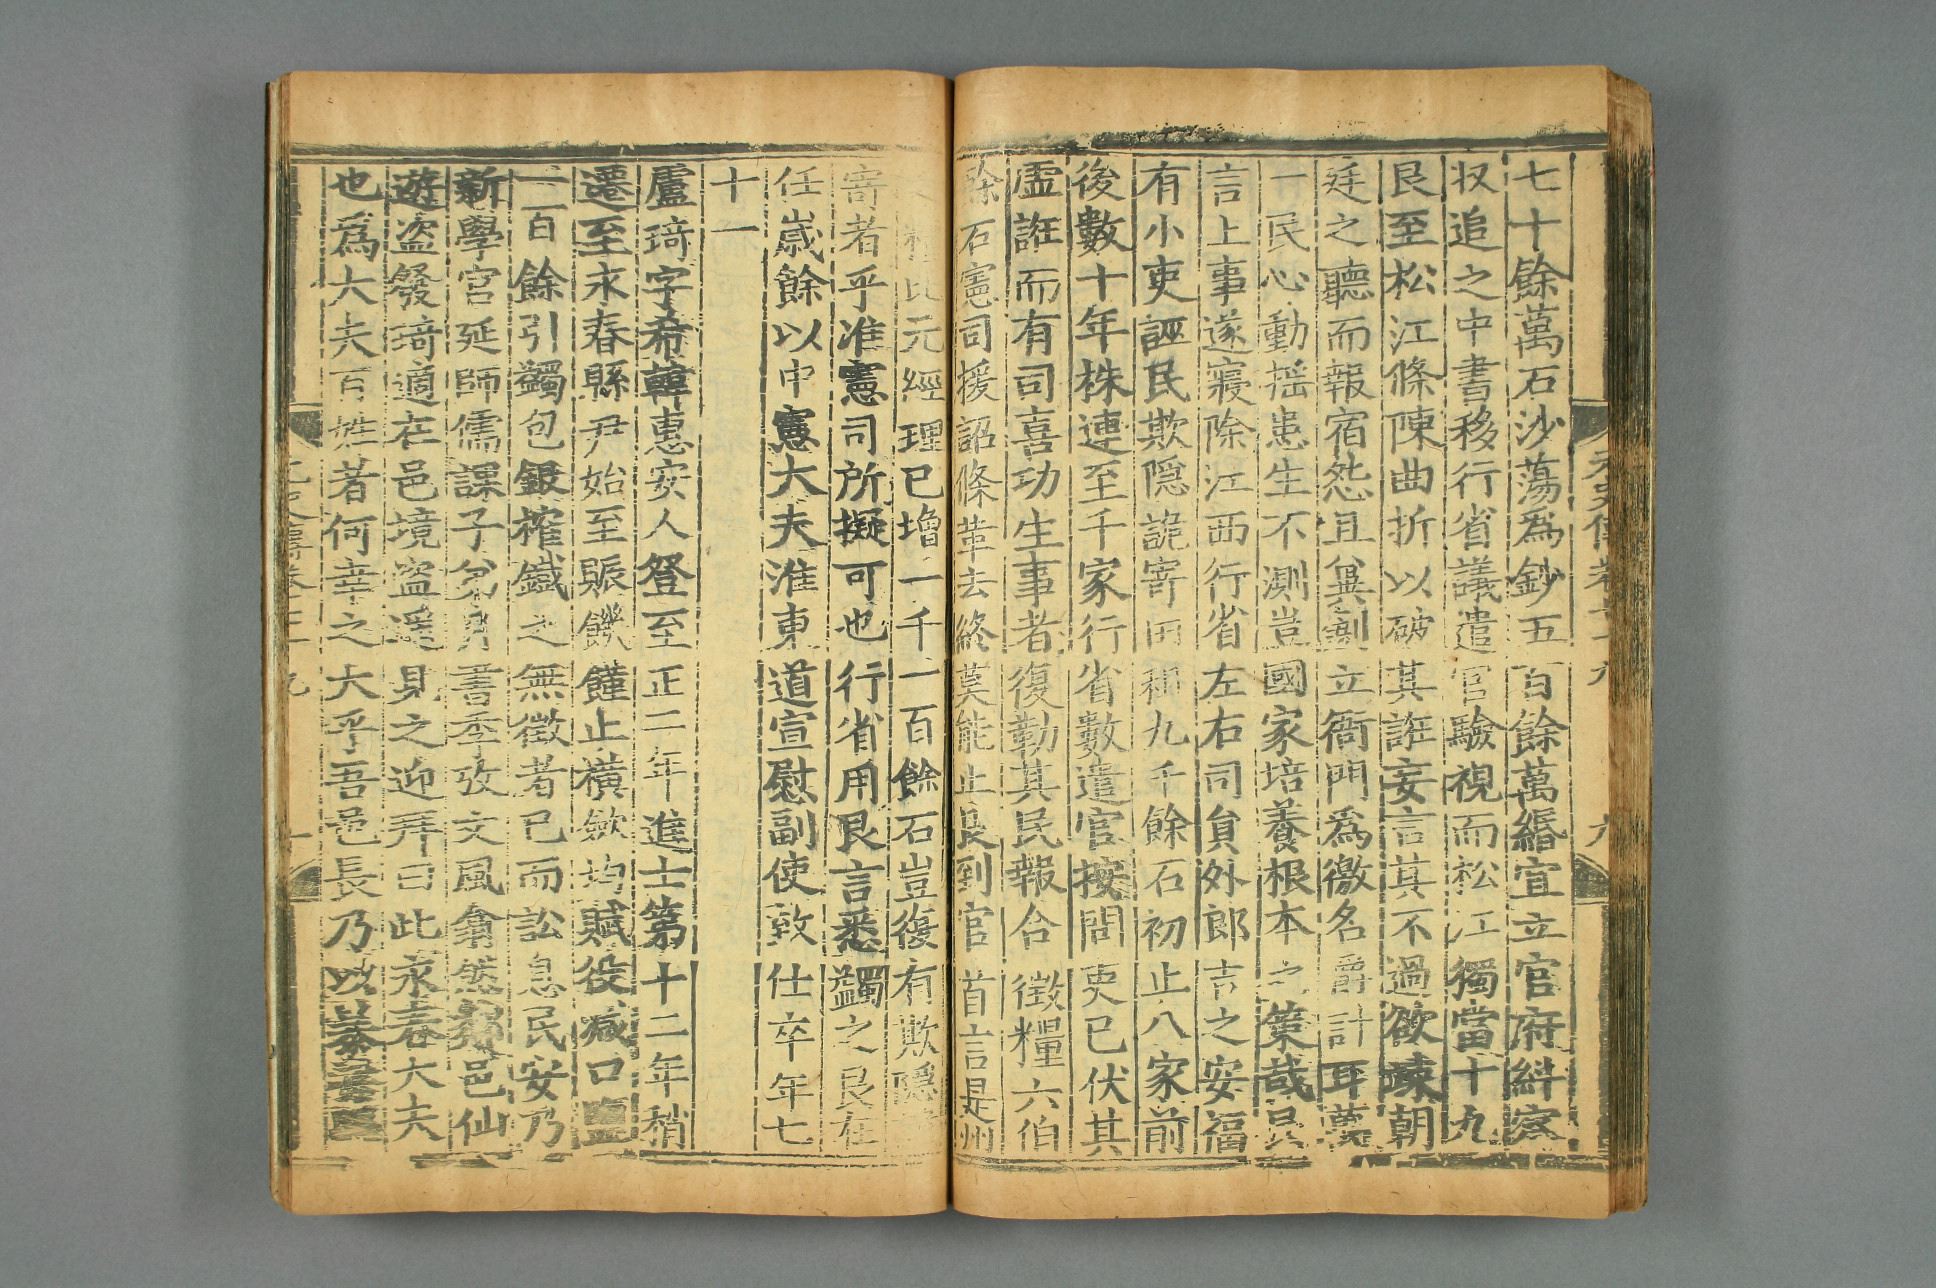 七十餘萬石沙蕩爲鈔五百餘萬緡宜立官府糾察
収追之中書移行省議遣官驗視而松江獨當十九
艮至松江條陳曲折以破其誑妄言其不過欲竦朝
廷之聽而報宿怨且兾創立衙門爲徼名爵計耳萬
一民心動揺患生不測豈國家培養根本之策哉
言上事遂寢除江西行省左右司貟外郎吉之安福
有小吏誣民欺隠詭寄田租九千餘石初止八家前
後數十年株連至千家行省數遣官按問吏已伏其
虛誑而有司喜功生事者復勒其民報合徵糧六伯
餘石憲司援詔條革去終莫能止艮到官首言是州
糧比元經理已増一千一百餘石豈復有欺隠
寄者乎准憲司所擬可也行省用艮言悉蠲之艮在
任嵗餘以中憲大夫淮東道宣慰副使致仕卒年七
十一
盧琦字希韓惠安人登至正二年進士第十二年稍
遷至永春縣尹始至賑饑饉止橫歛均賦役减口鹽
一百餘引蠲包銀榷鐵之無徵者已而訟息民安乃
新學宮延師儒課子弟月書季攷文風翕然鄰邑仙
遊盗發琦適在邑境盗遥見之迎拜曰此永春大夫
也爲大夫百姓者何幸之大乎吾邑長乃以暴
元史傳卷七十九 九